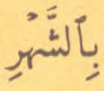 بِالشَّهْرِ